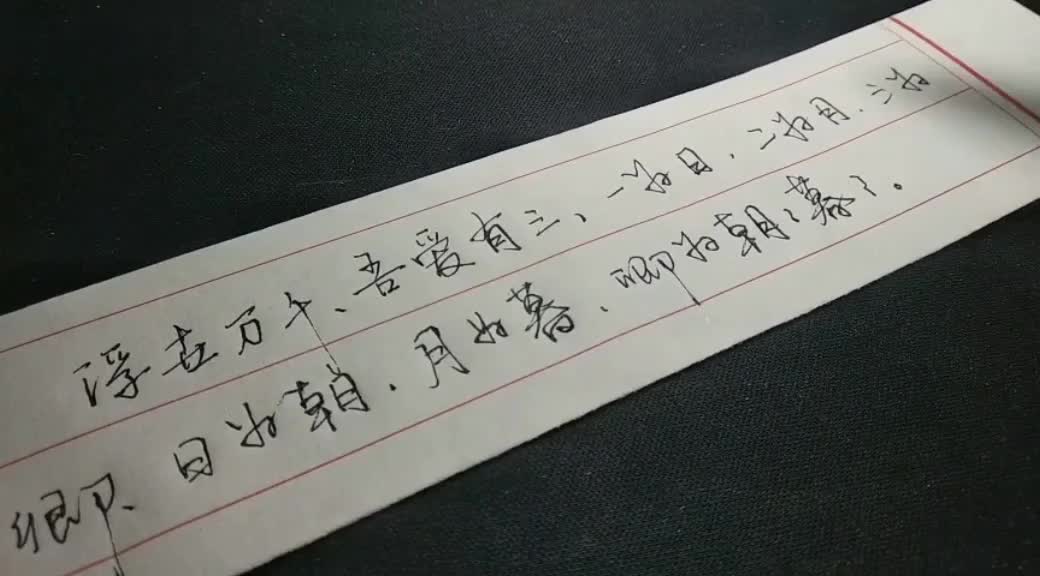 浮世万千、吾爱有三、一为日，二为月，三为
卿、日为朝，月为暮，卿为朝々暮々。